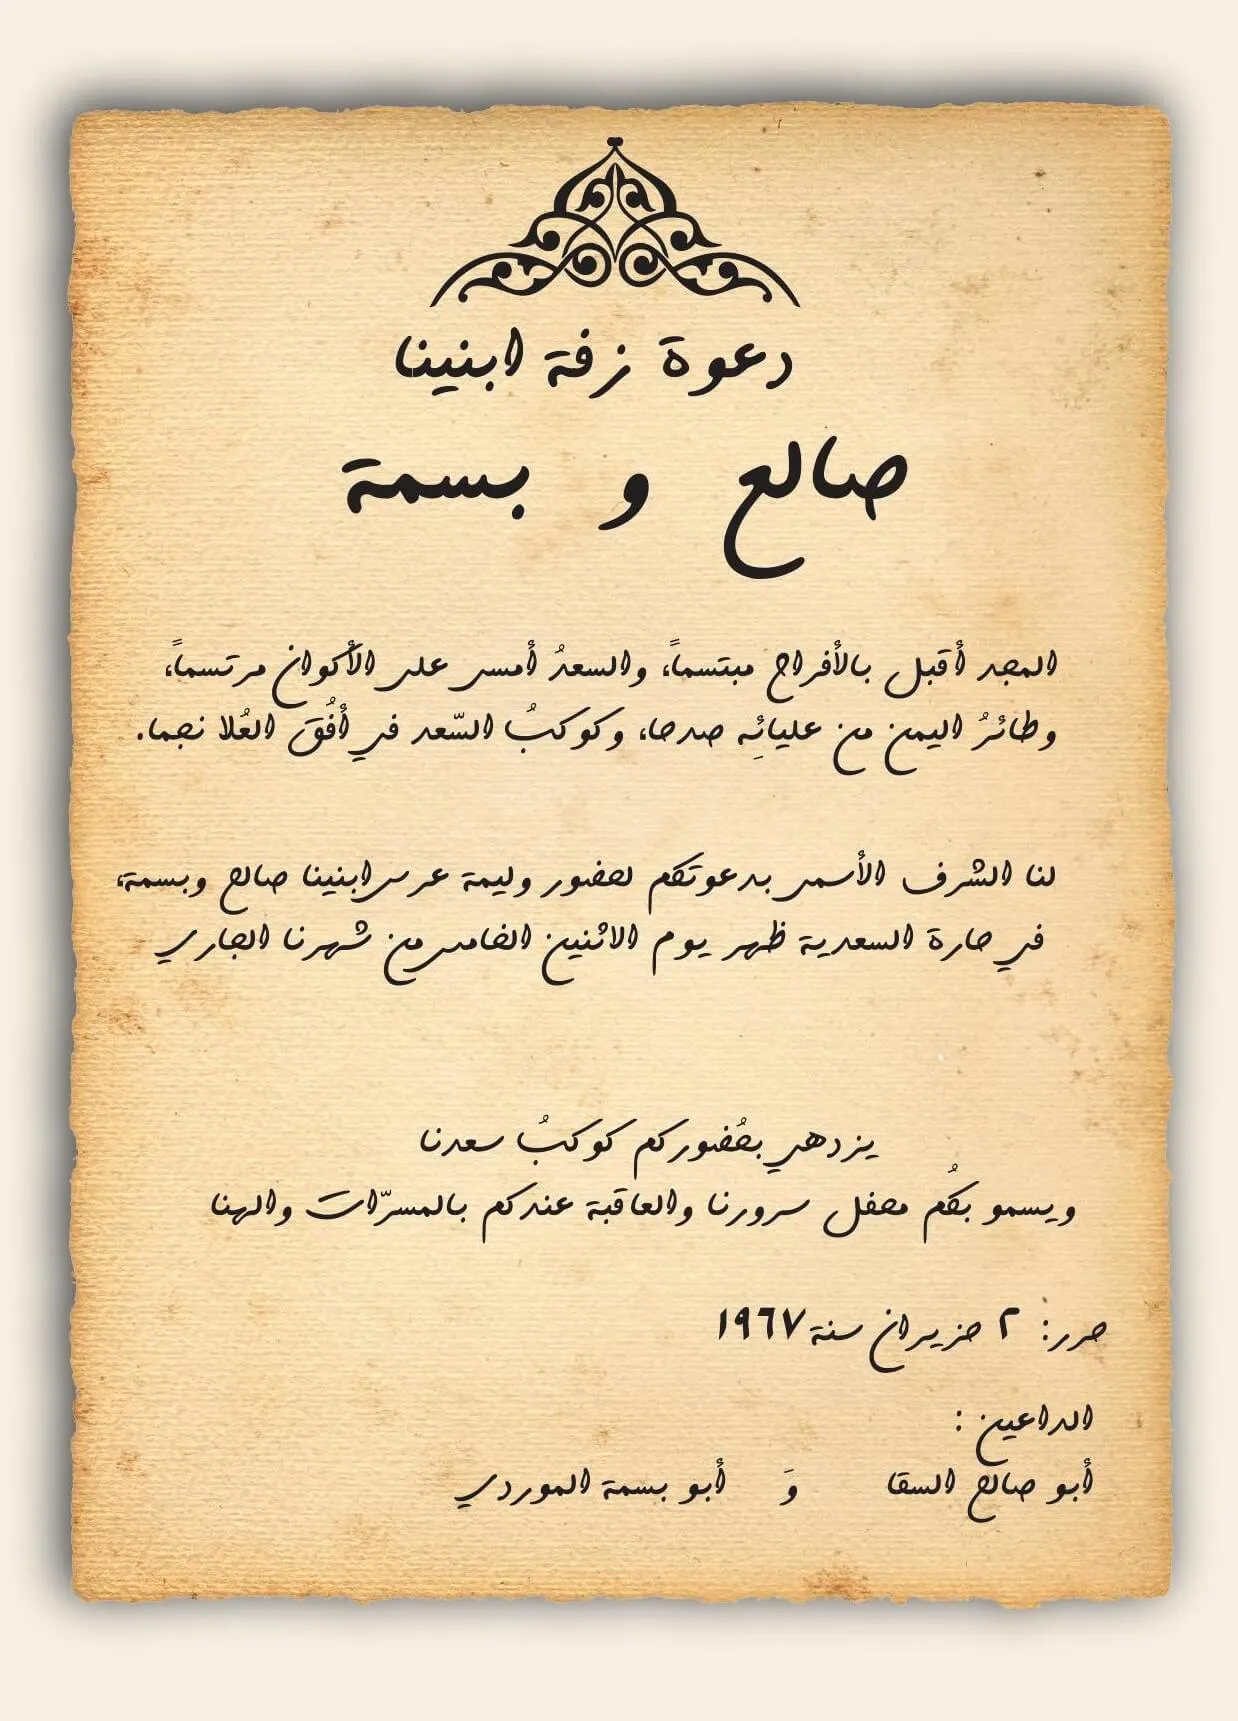 دعوة زفة ابنينا
صالح و بسمة
المجد أقبل بالأفراح مبتسماً، والسعدُ أمسى على الأكوان مرتسماً،
وطائرُ اليمن من عليائِه صدحا، وكوكبُ السّعد في أُفُق العُلا نجما.
لنا الشرف الأسمى بدعوتكم لحضور وليمة عرس ابنينا صالح وبسمة،
في حارة السعدية ظهر يوم الاثنين الخامس من شهرنا الجاري
يزدهي بحُضوركم كوكبُ سعدنا
ويسمو بكُم محفل سرورنا والعاقبة عندكم بالمسرّات والهنا
حرر: ٢ حزيران سنة ١٩٦٧
الداعين :
أبو صالح السقا وَ أبو بسمة الموردي